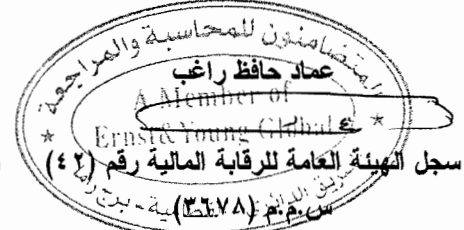 المتضامنون للمحاسبة والمراجعة
عماد حافظ راغب
A Member of
Ernst & Young Global
سجل الهيئة العامة للرقابة المالية رقم (٤٢)
س.م.م (٣٦٧٨)